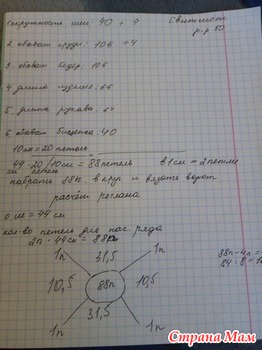 окружность шеи: 40 + 4
Свитшот
р-р 50
2. обхват груди: 106 +4
3. обхват бедер: 106
4 длина изделия: 66
5. длина рукава:
6 обхват бицепса: 40
10см = 20 петель
44·20/10см = 88 петель
в 1см = 2 петли
см петель
набрать 88п. в круг и вязать ворот
расчет реглана
О.ш = 44 см
кол-во петель для нач. ряда
2п · 44см = 88п
1п 31,5 1п
10,5 88п 10,5
31,5
1п 1п
88п - 4п =
84 : 8 =
Страна Мам